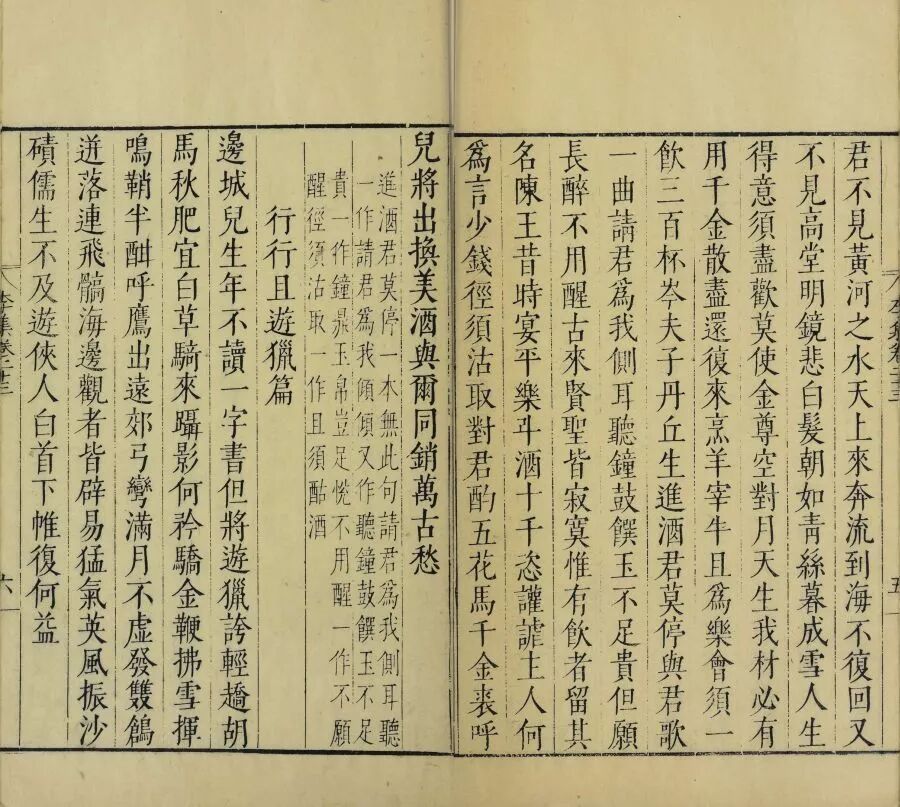 君不見黃河之水天上來奔流到海不復回又
不見高堂明鏡悲白髮朝如青絲暮成雪人生
得意須盡歡莫使金尊空對月天生我材必有
用千金散盡還復來烹羊宰牛且爲樂會須一
飲三百杯岑夫子丹丘生進酒君莫停與君歌
一曲請君爲我側耳聽鐘鼓饌玉不足貴但願
長醉不用醒古來賢聖皆寂寞惟有飲者留其
名陳王昔時宴平樂斗酒十千恣讙謔主人何
爲言少錢徑須沽取對君酌五花馬千金裘呼
李集卷二十三
五
兒將出換美酒與爾同銷萬古愁
進酒君莫停一本無此句請君爲我側耳聽
一作請君爲我傾傾又作聽鐘鼓饌玉不足
貴一作鐘鼎玉帛豈足悅不用醒一作不願
醒徑須沽取一作且須酤酒
行行且遊獵篇
邊城兒生年不讀一字書但將遊獵誇輕趫胡
馬秋肥宜白草騎來躡影何矜驕金鞭拂雪揮
鳴鞘半酣呼鷹出遠郊弓彎滿月不虛發雙鶬
迸落連飛髇海邊觀者皆辟易猛氣英風振沙
磧儒生不及遊俠人白首下帷復何益
李集卷二十三
六